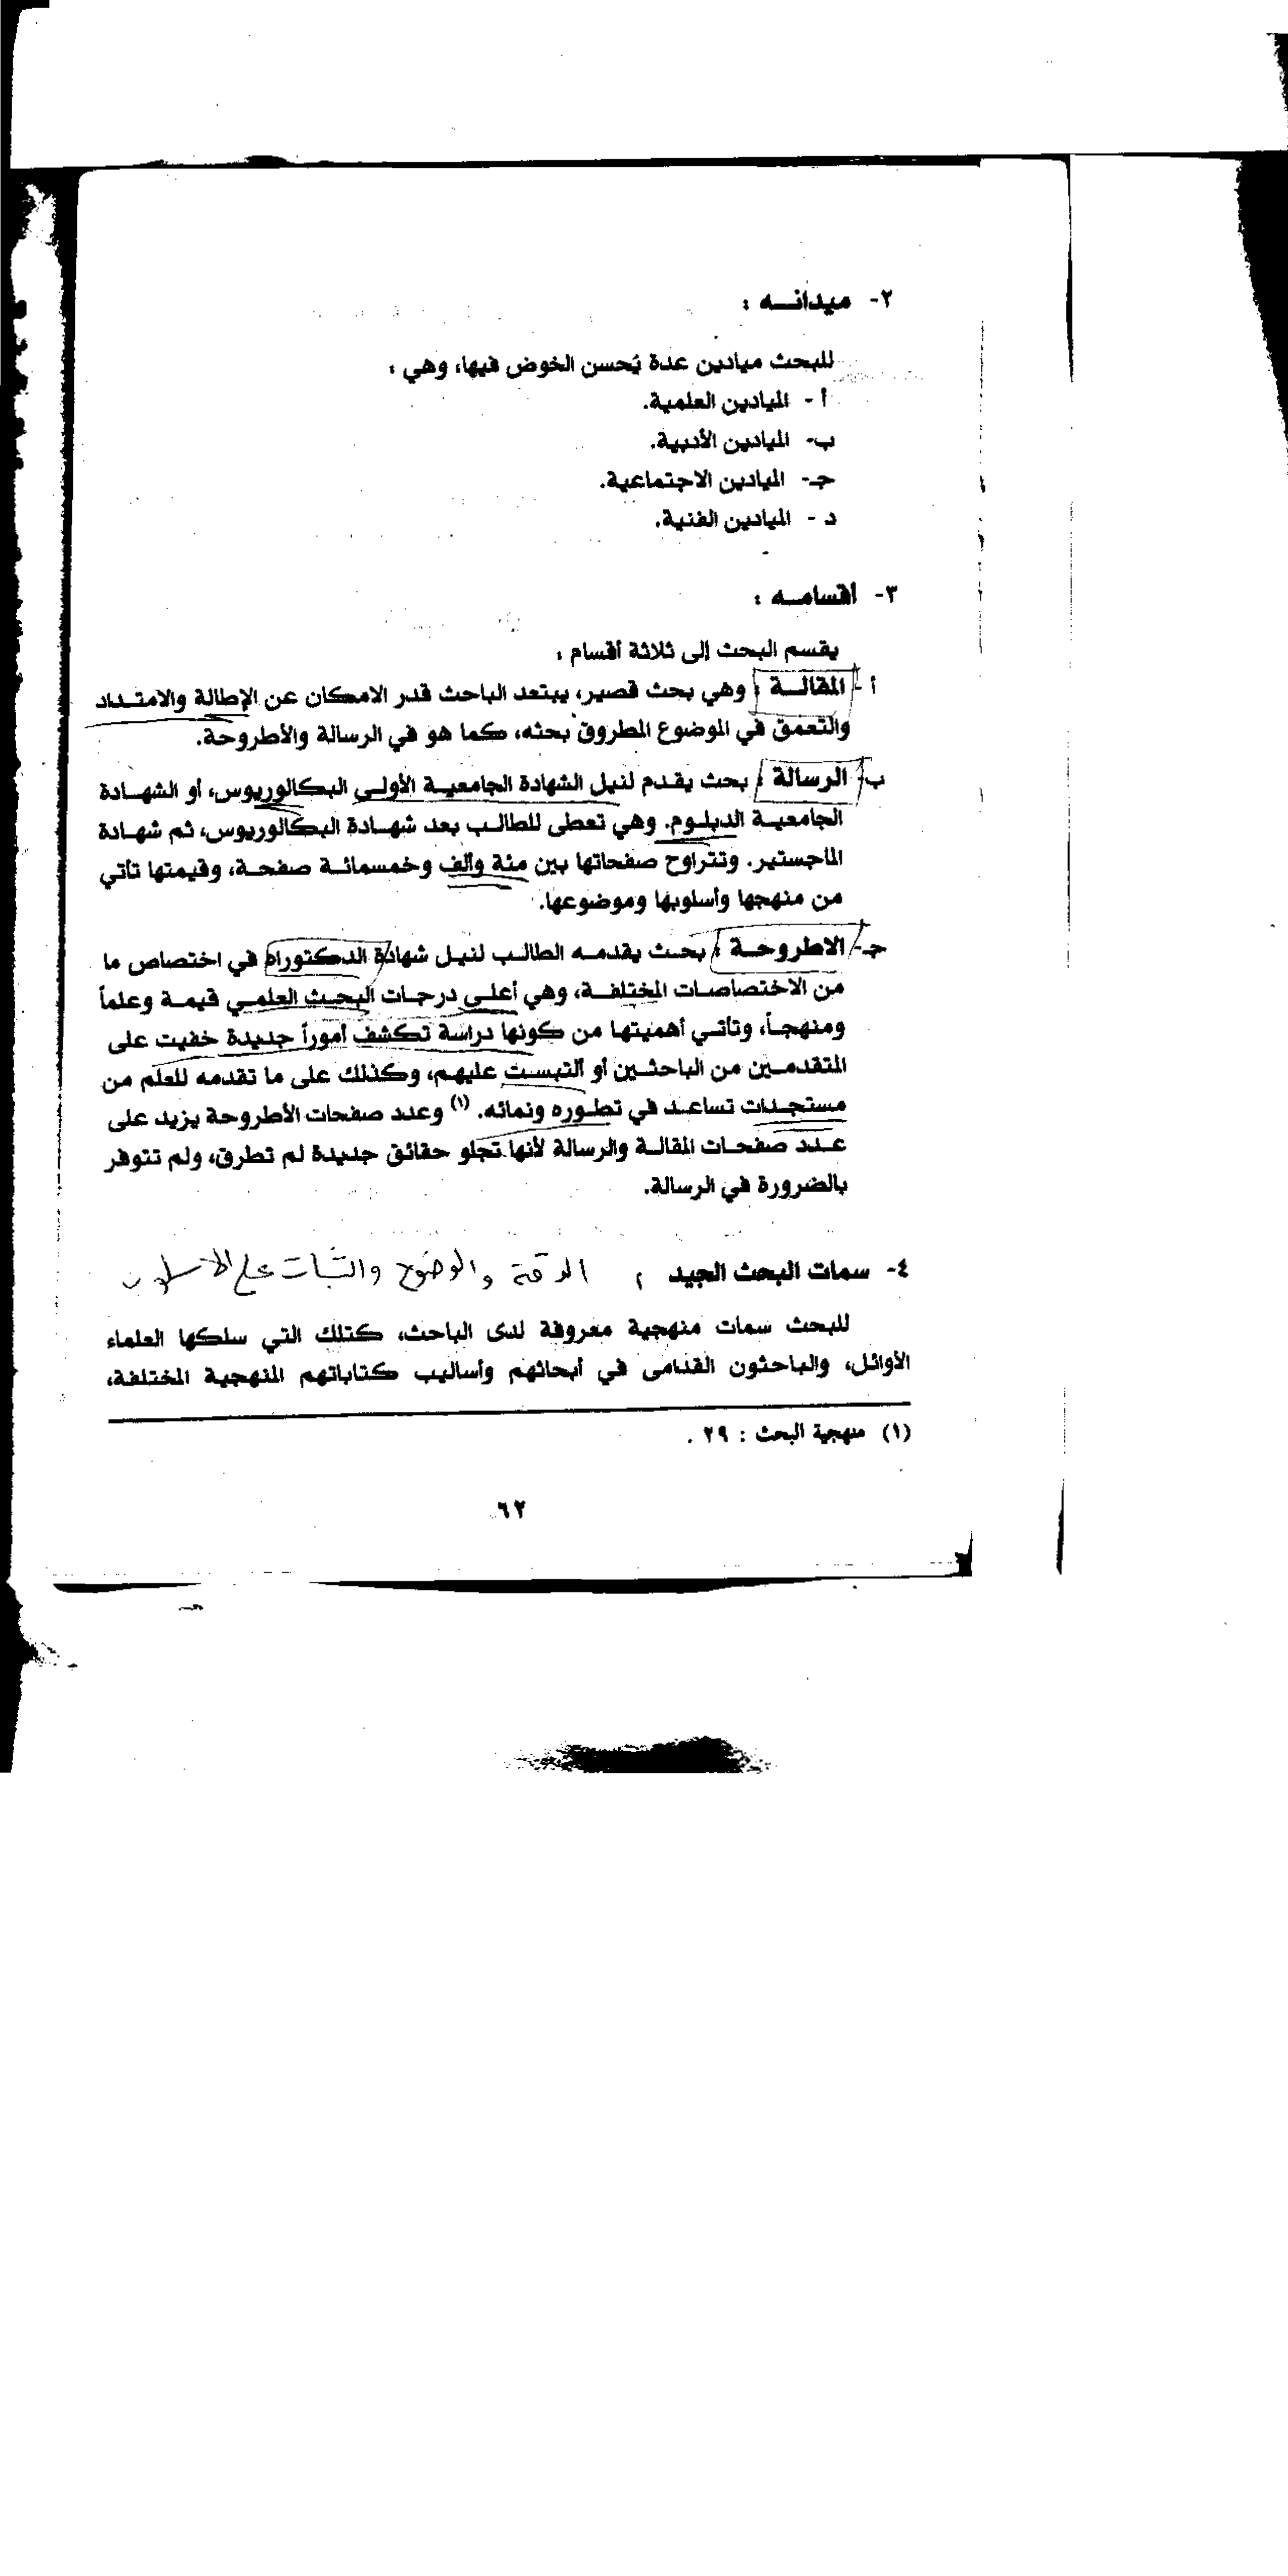 ٢- ميدانـــه :
للبحث ميادين عدة يُحسن الخوض فيها، وهي :
أ - الميادين العلمية.
ب- الميادين الأدبية.
جـ- الميادين الاجتماعية.
د - الميادين الفنية.
٣- أقسامـــه :
يقسم البحث إلى ثلاثة أقسام :
أ - المقالــة : وهي بحث قصير، يبتعد الباحث قدر الامكان عن الإطالة والامتــداد
والتعمق في الموضوع المطروق بحثه، كما هو في الرسالة والأطروحة.
ب- الرسالة : بحث يقدم لنيل الشهادة الجامعيـة الأولـى البكالوريوس، أو الشهــادة
الجامعيـة الدبلـوم. وهي تعطى للطالـب بعد شهـادة البكالوريوس، ثم شهـادة
الماجستير. وتتراوح صفحاتها بين مئة وألف وخمسمائـة صفحـة، وقيمتها تأتي
من منهجها وأسلوبها وموضوعها.
جـ- الاطروحــة : بحـث يقدمـه الطالـب لنيـل شهادة الدكتوراه في اختصاص ما
من الاختصاصـات المختلفـة، وهي أعلـى درجـات البحـث العلمـي قيمـة وعلماً
ومنهجـاً، وتأتـي أهميتهـا من كونها دراسة تكشف أموراً جديدة خفيت على
المتقدمـين من الباحثـين أو التبسـت عليهم، وكذلك على ما تقدمه للعلم من
مستجـدات تساعـد في تطـوره ونمائه. (١) وعدد صفحات الأطروحة يزيد على
عـدد صفحـات المقالـة والرسالة لأنها تجلو حقائق جديدة لم تطرق، ولم تتوفر
بالضرورة في الرسالة.
٤- سمات البحث الجيد : الدقة والوضوح والثبات على الاسلوب
للبحث سمات منهجية معروفة لدى الباحث، كتلك التي سلكها العلماء
الأوائل، والباحثون القدامى في أبحاثهم وأساليب كتاباتهم المنهجية المختلفة،
(١) منهجية البحث : ٢٩ .
٦٢